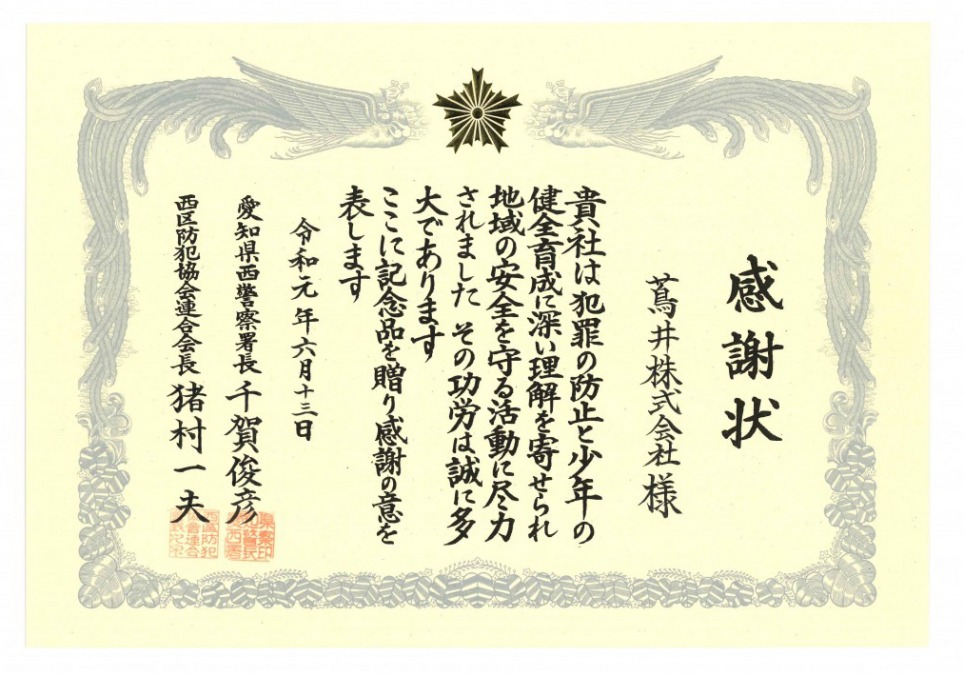 感謝状
蔦井株式会社様
貴社は犯罪の防止と少年の
健全育成に深い理解を寄せられ
地域の安全を守る活動に尽力
されました その功労は誠に多
大であります
ここに記念品を贈り感謝の意を
表します
令和元年六月十三日
愛知県西警察署長 千賀俊彦
西区防犯協会連合会長 猪村一夫